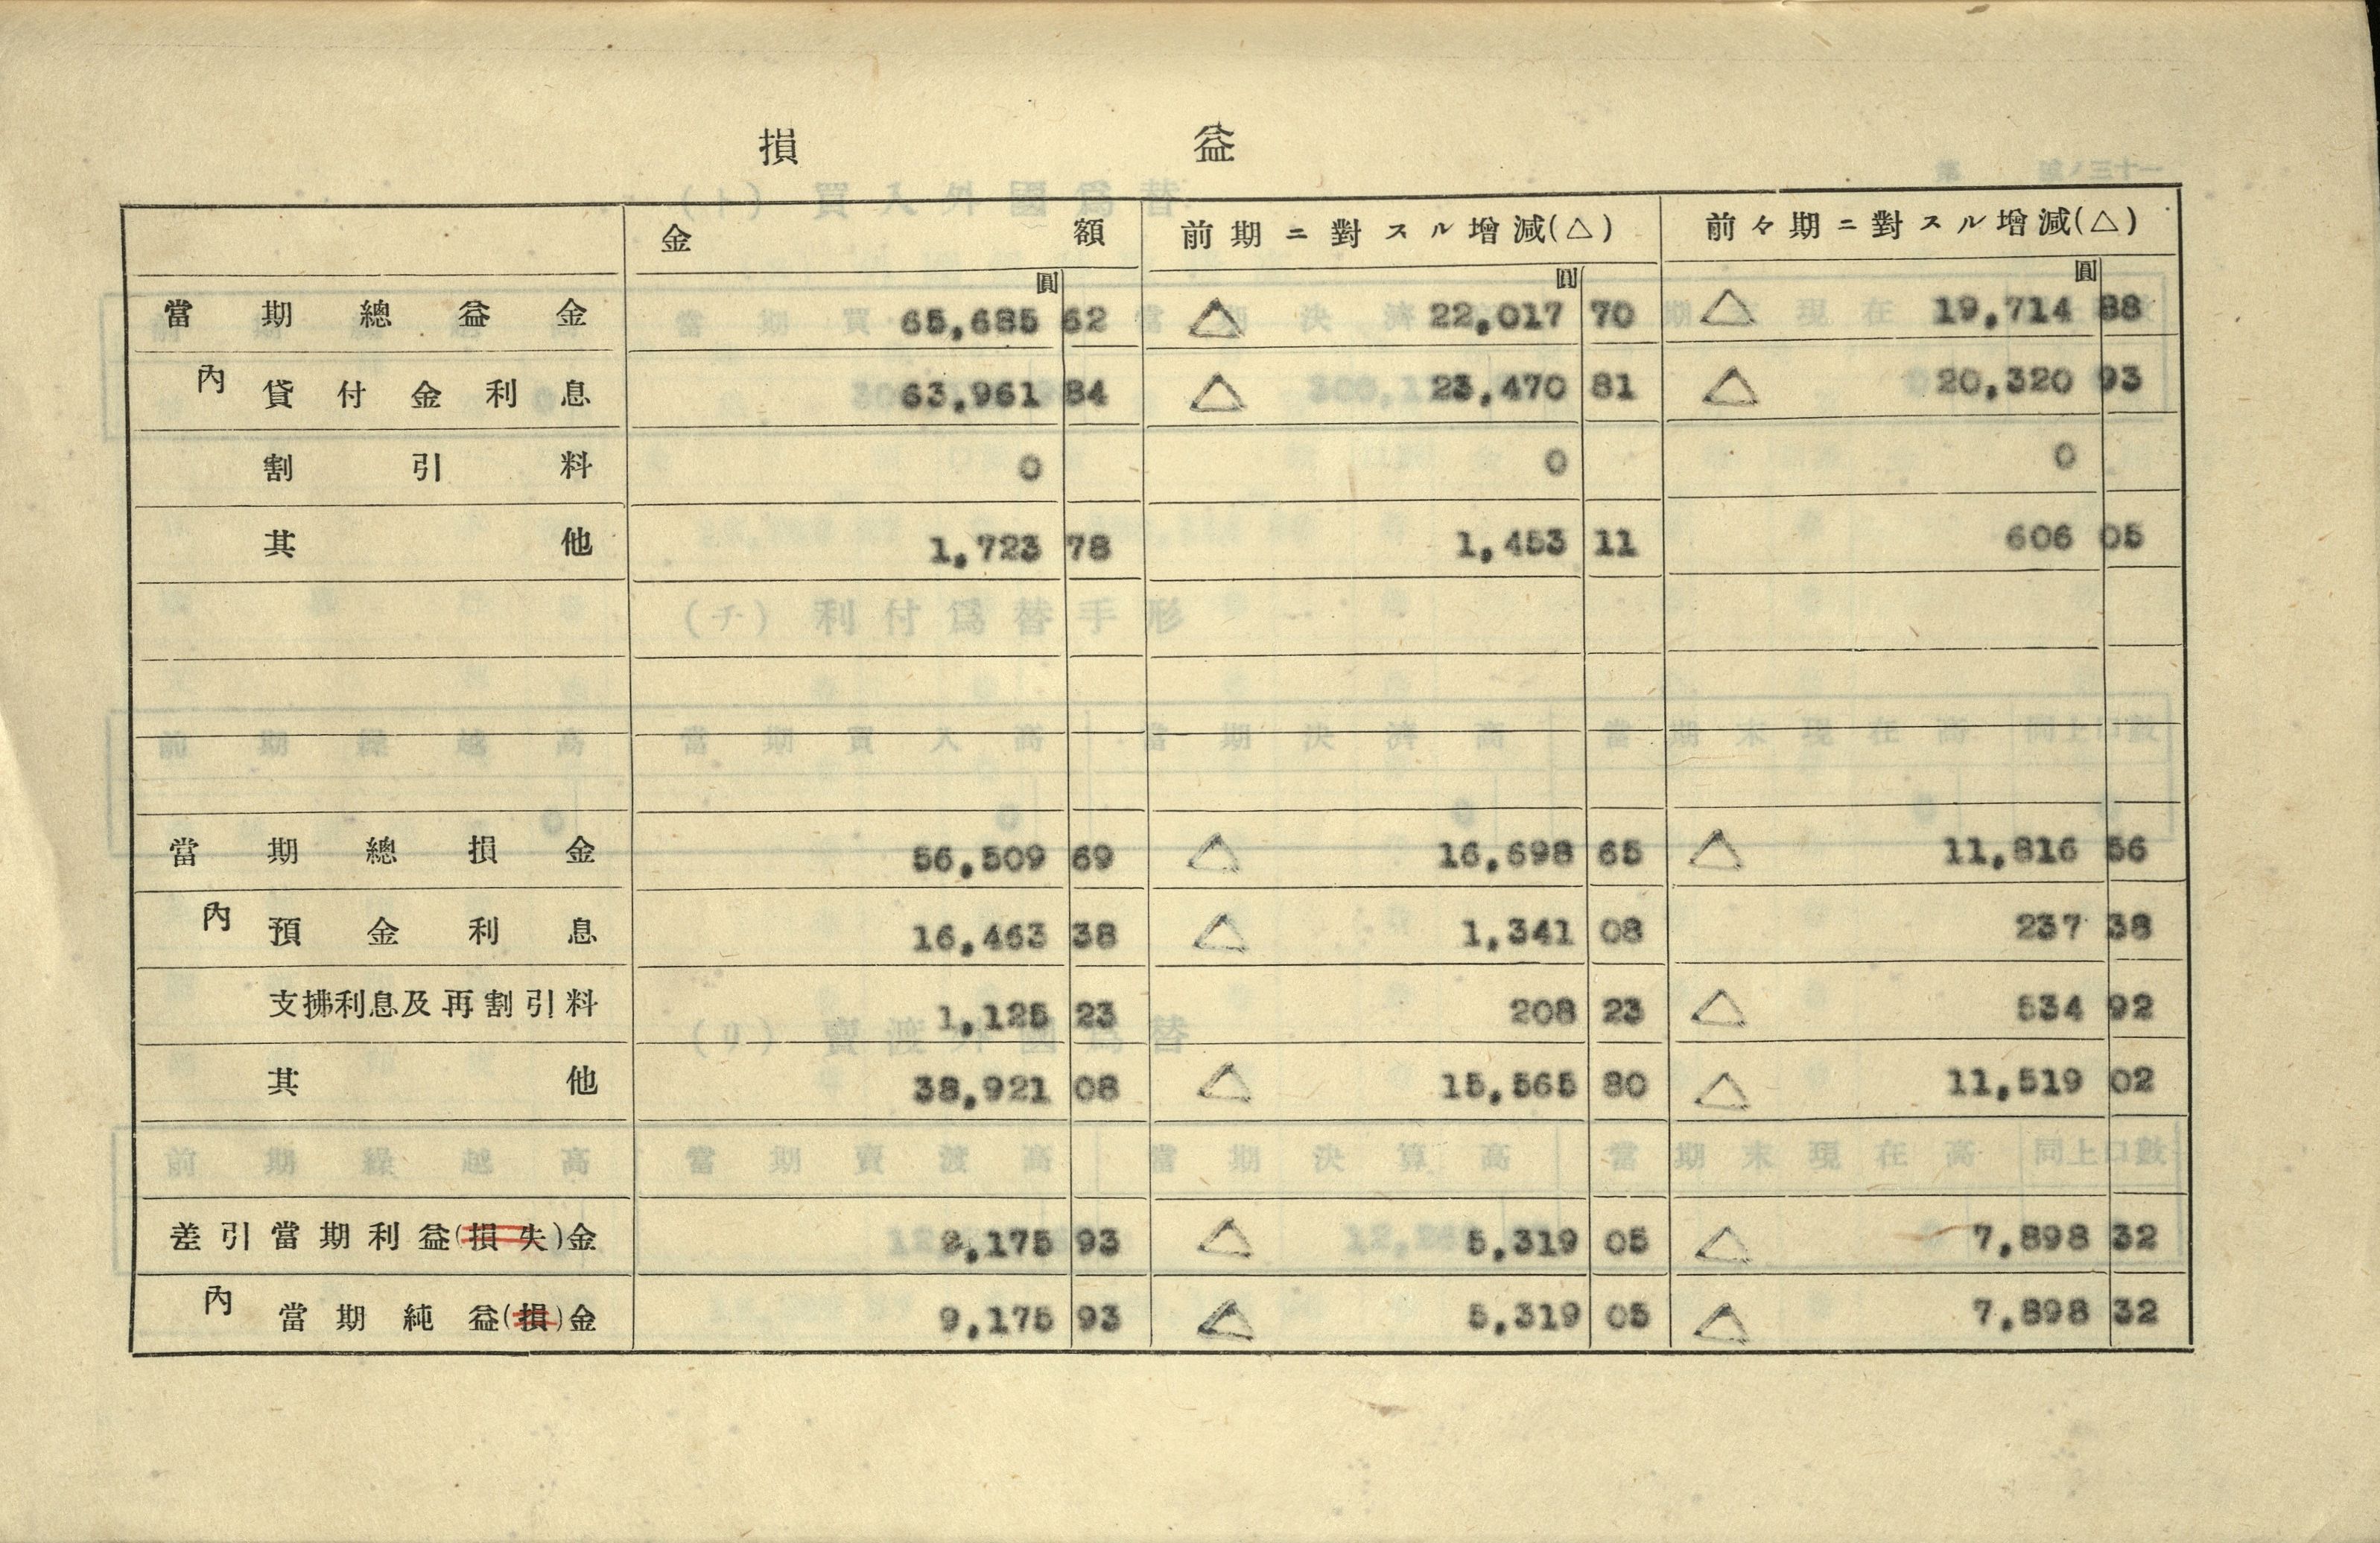 損益
金額 前期ニ對スル增減(△) 前々期ニ對スル增減(△)
圓 圓 圓
當期總益金 65,685 62 △ 22,017 70 △ 19,714 88
內 貸付金利息 63,961 84 △ 23,470 81 △ 20,320 93
割引料 0 0 0
其他 1,723 78 1,453 11 606 05
當期總損金 56,509 69 △ 16,698 65 △ 11,816 56
內 預金利息 16,463 38 △ 1,341 08 237 38
支拂利息及再割引料 1,125 23 208 23 △ 534 92
其他 38,921 08 △ 15,565 80 △ 11,519 02
差引當期利益(損失)金 9,175 93 △ 5,319 05 △ 7,898 32
內 當期純益(損)金 9,175 93 △ 5,319 05 △ 7,898 32